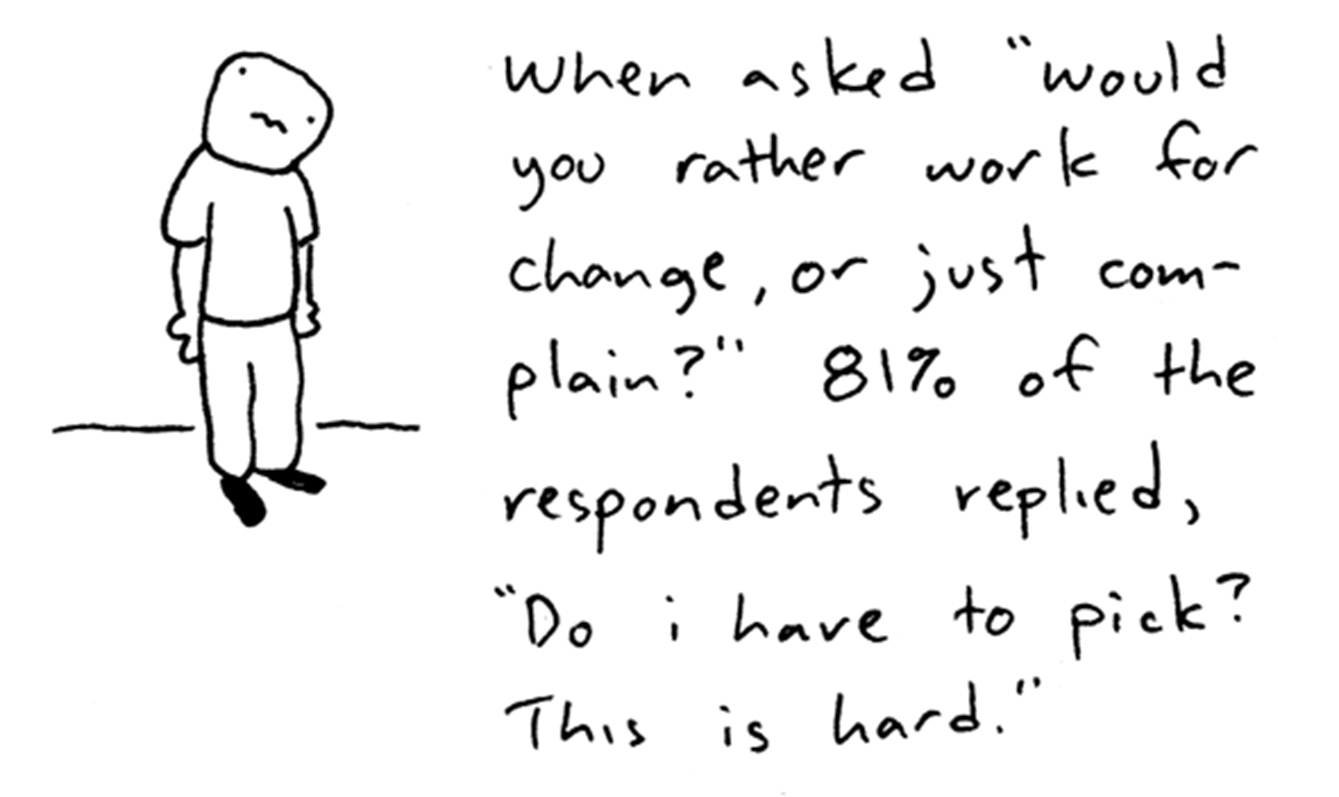 When asked "would
you rather work for
change, or just com-
plain?" 81% of the
respondents replied,
"Do i have to pick?
This is hard."